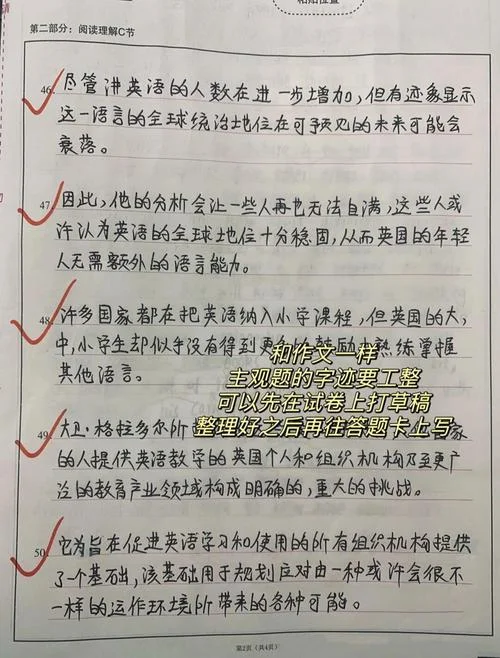 粘贴位置
第二部分：阅读理解C节
46. 尽管讲英语的人数在进一步增加，但有迹象显示
这一语言的全球统治地位在可预见的未来可能会
衰落。
47. 因此，他的分析会让一些人再也无法自满，这些人或
许认为英语的全球地位十分稳固，从而英国的年轻
人无需额外的语言能力。
48. 许多国家都在把英语纳入小学课程，但英国的大，
中，小学生却似乎没有得到更多的鼓励去熟练掌握
其他语言。
和作文一样
主观题的字迹要工整
可以先在试卷上打草稿
整理好之后再往答题卡上写
49. 大卫·格拉多尔所 家
的人提供英语教学的英国个人和组织机构乃至更广
泛的教育产业领域构成明确的，重大的挑战。
50. 它为旨在促进英语学习和使用的所有组织机构提供
了个基础，该基础用于规划应对由一种或许会很不
一样的运作环境所带来的各种可能。
第2页（共4页）